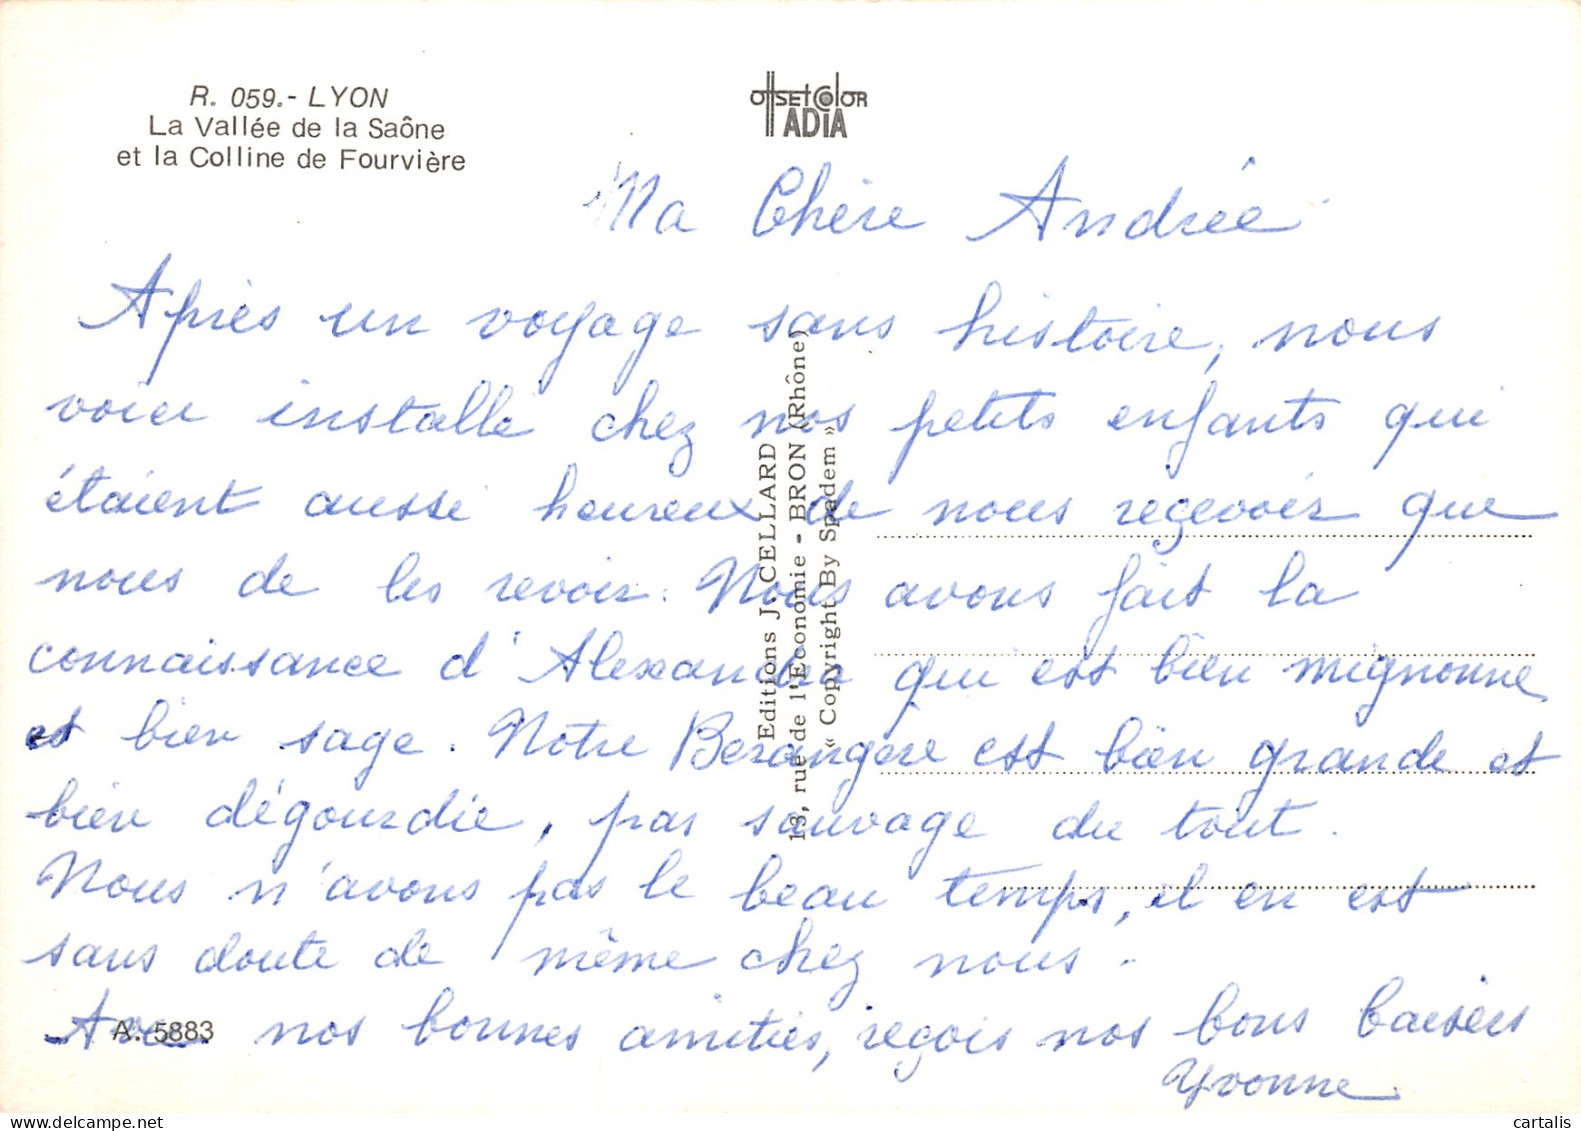 R. 059.- LYON
La Vallée de la Saône
et la Colline de Fourvière
OffSEt ColoR
ADIA
Ma Chère Andrée
Après un voyage sans histoire, nous
voici installé chez nos petits enfants qui
étaient aussi heureux de nous reçevoir que
nous de les revoir. Nous avons fait la
connaissance d'Alexandra qui est bien mignonne
et bien sage. Notre Berangère est bien grande et
bien dégourdie, pas sauvage du tout.
Nous n'avons pas le beau temps, il en est
sans doute de même chez nous.
Avec nos bonnes amitiés, reçois nos bons baisers
Yvonne
A. 5883
Editions J. CELLARD
13, rue de l'Economie - BRON (Rhône)
« Copyright By Spadem »
cartalis